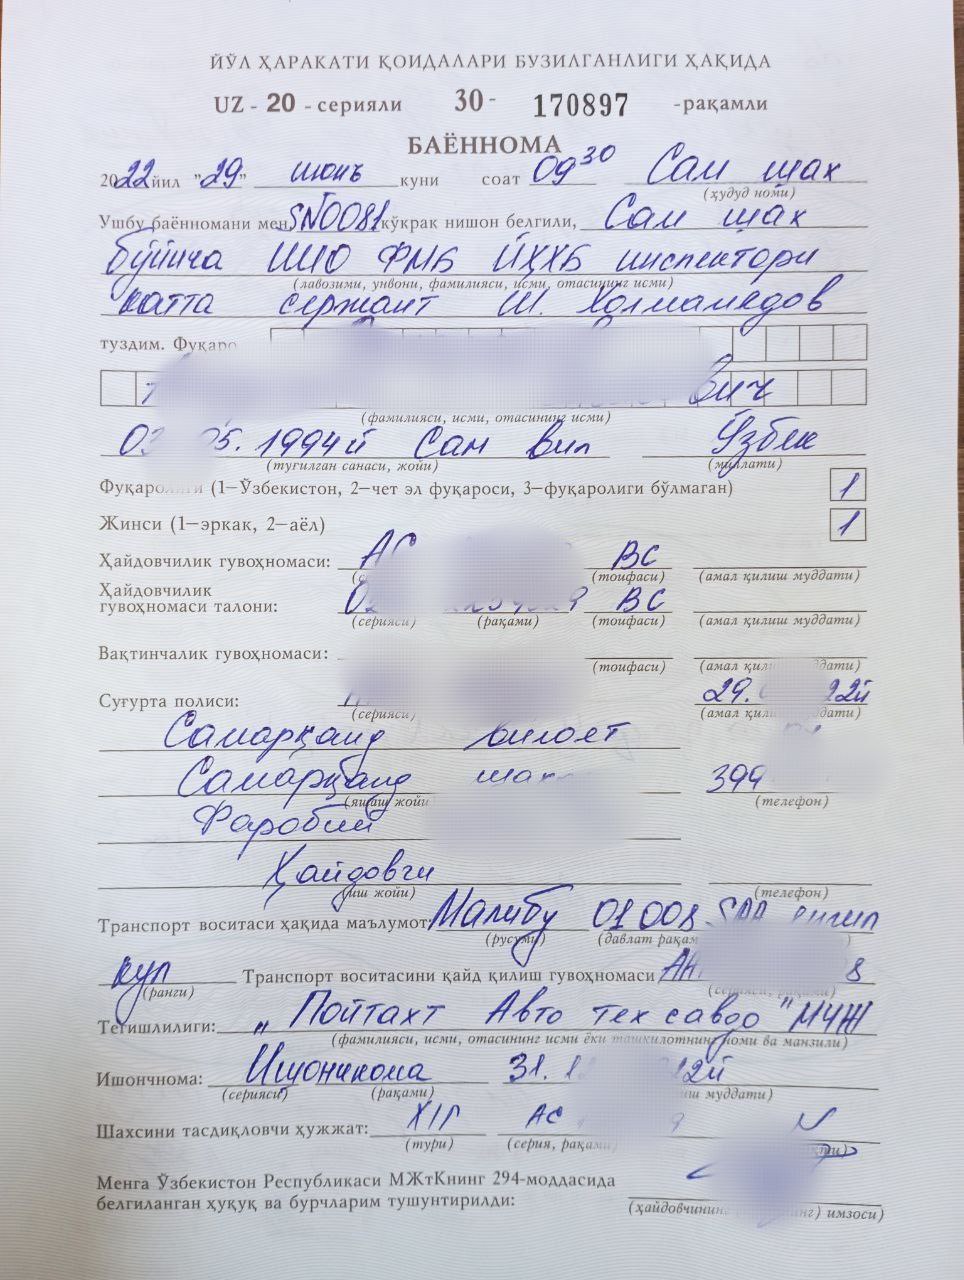 ЙЎЛ ҲАРАКАТИ ҚОИДАЛАРИ БУЗИЛГАНЛИГИ ҲАҚИДА
UZ - 20 - серияли 30 - 170897 -рақамли
БАЁННОМА
2022 йил "29" июнь куни соат 09 30 Сам шах
(ҳудуд номи)
Ушбу баённомани мен SN0081 кўкрак нишон белгили, Сам шах
бўйича ИИО ФМБ ЙҲХБ инспектори
(лавозими, унвони, фамилияси, исми, отасининг исми)
катта сержант Ш. Холмамедов
туздим. Фуқаро
вич
(фамилияси, исми, отасининг исми)
5. 1994й Сам вил Ўзбек
(туғилган санаси, жойи) (миллати)
Фуқаролиги (1—Ўзбекистон, 2—чет эл фуқароси, 3—фуқаролиги бўлмаган) 1
Жинси (1—эркак, 2—аёл) 1
Ҳайдовчилик гувоҳномаси: АС ВС
(тоифаси) (амал қилиш муддати)
Ҳайдовчилик
гувоҳномаси талони: ВС
(серияси) (рақами) (тоифаси) (амал қилиш муддати)
Вақтинчалик гувоҳномаси:
(тоифаси) (амал қилиш муддати)
Суғурта полиси: 29. 22й
(серияси) (амал қилиш муддати)
Самарқанд вилоят
Самарқанд шах 399
(яшаш жойи (телефон)
Фаробий
Ҳайдовчи
(иш жойи) (телефон)
Транспорт воситаси ҳақида маълумот: Малибу 01 008 енгил
(русуми) (давлат рақам
кул Транспорт воситасини қайд қилиш гувоҳномаси АН 8
(ранги) (серияси, рақами)
Тегишлилиги: „Пойтахт Авто тех савдо" МЧЖ
(фамилияси, исми, отасининг исми ёки ташкилотнинг номи ва манзили)
Ишончнома: Ишончнома 31. 22й
(серияси) (рақами) иш муддати)
Шахсини тасдиқловчи ҳужжат: ХГГ АС
(тури) (серия, рақами
Менга Ўзбекистон Республикаси МЖтКнинг 294-моддасида
белгиланган ҳуқуқ ва бурчларим тушунтирилди:
(ҳайдовчининг имзоси)